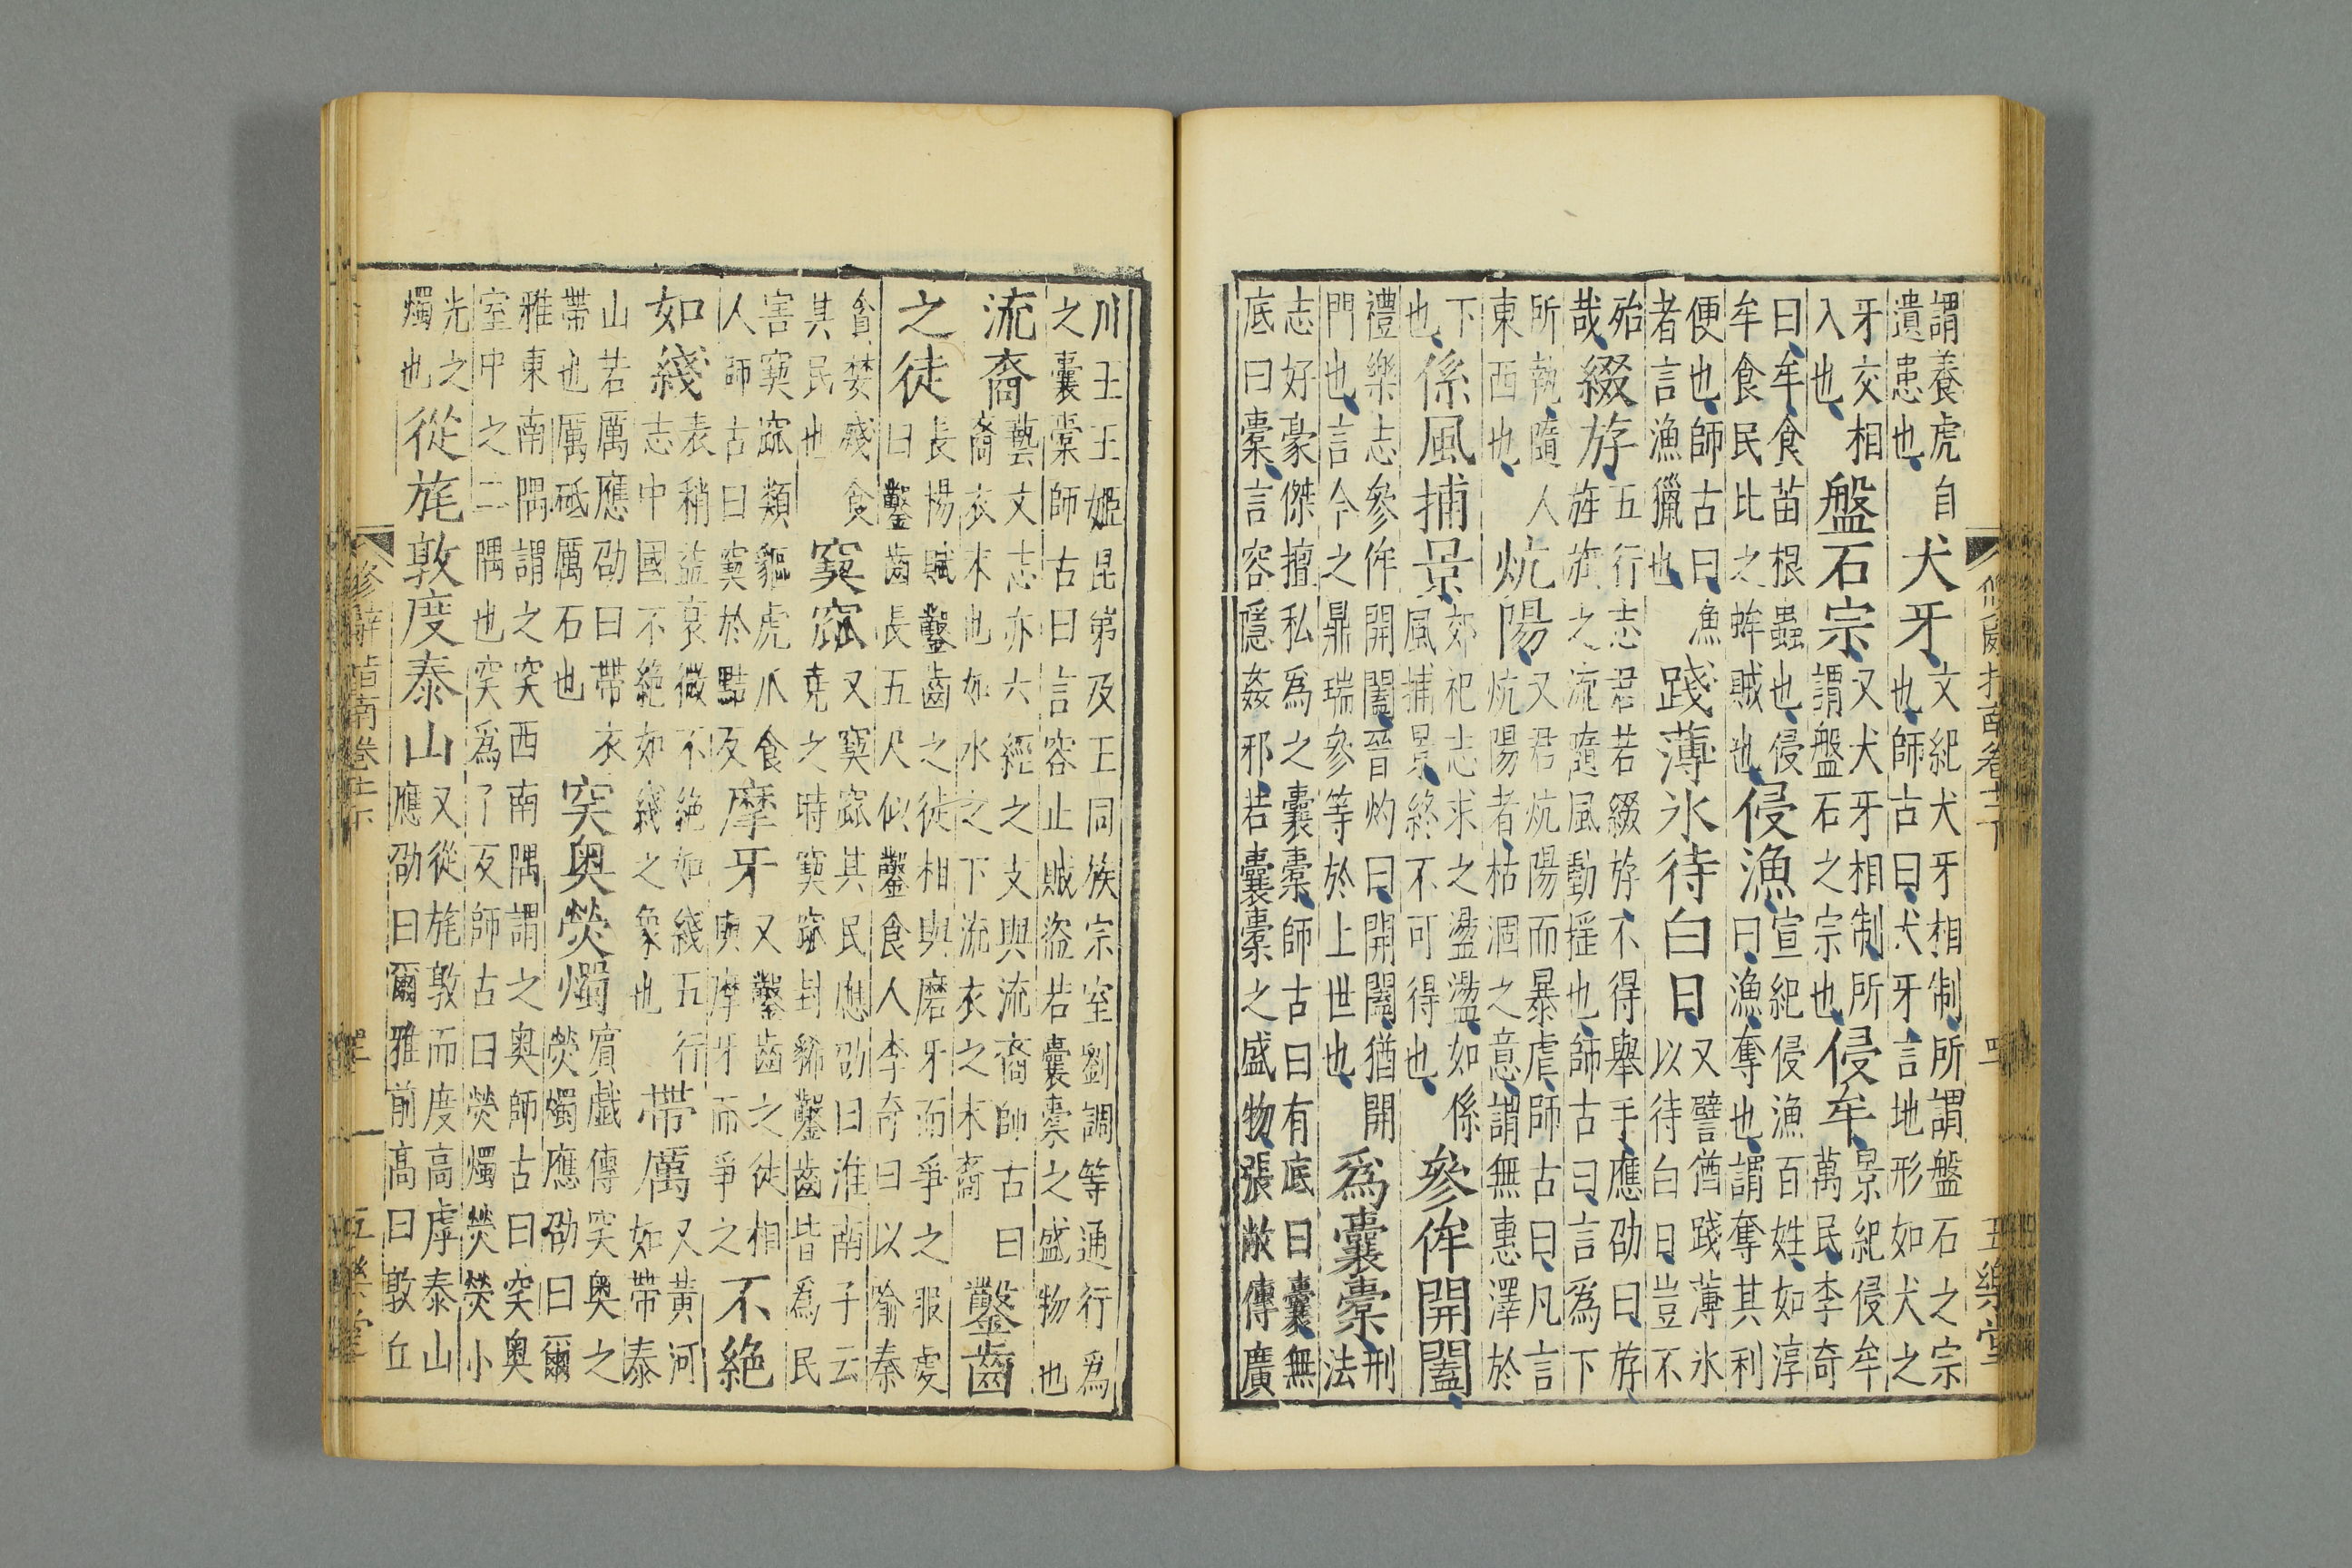 謂養虎自
遺患也
犬牙
文紀犬牙相制所謂盤石之宗
也師古曰犬牙言地形如犬之
牙交相
入也
盤石宗
又犬牙相制所
謂盤石之宗也
侵牟
景紀侵牟
萬民李奇
曰牟食苗根蟲也侵
牟食民比之蛑賊也
侵漁
宣紀侵漁百姓如淳
曰漁奪也謂奪其利
便也師古曰漁
者言漁獵也
踐薄氷待白日
又譬猶踐薄氷
以待白日豈不
殆
哉
綴斿
五行志君若綴斿不得舉手應劭曰斿
旌旗之流隨風動摇也師古曰言爲下
所執隨人
東西也
炕陽
又君炕陽而暴虐師古曰凡言
炕陽者枯涸之意謂無惠澤於
下
也
係風捕景
郊祀志求之盪盪如係
風捕景終不可得也
參侔開闔
禮樂志參侔開闔晉灼曰開闔猶開
門也言今之鼎瑞參等於上世也
爲囊橐
刑
法
志好豪傑擅私爲之囊橐師古曰有底曰囊無
底曰橐言容隱姦邪若囊橐之盛物張敞傳廣
川王王姬昆弟及王同族宗室劉調等通行爲
之囊橐師古曰言容止賊盜若囊橐之盛物也
流裔
藝文志亦六經之支與流裔師古曰
裔衣末也如水之下流衣之末裔
鑿齒
之徒
長楊賦鑿齒之徒相與磨牙而爭之服虔
曰鑿齒長五尺似鑿食人李奇曰以喻秦
貪婪殘食
其民也
窫窳
又窫窳其民應劭曰淮南子云
堯之時窫窳封豨鑿齒皆爲民
害窫窳類貙虎爪食
人師古曰窫於黠反
摩牙
又鑿齒之徒相
與摩牙而爭之
不絶
如綫
表稍益衰微不絶如綫五行
志中國不絶如綫之象也
帶厲
又黃河
如帶泰
山若厲應劭曰帶衣
帶也厲砥厲石也
突奥熒燭
賓戲傳突奥之
熒燭應劭曰爾
雅東南隅謂之突西南隅謂之奥師古曰突奥
室中之二隅也突爲了反師古曰熒燭熒小
光之
燭也
從旄敦度泰山
又從旄敦而度高虖泰山
應劭曰爾雅前高曰敦丘
修辭指南卷二十下
五樂堂